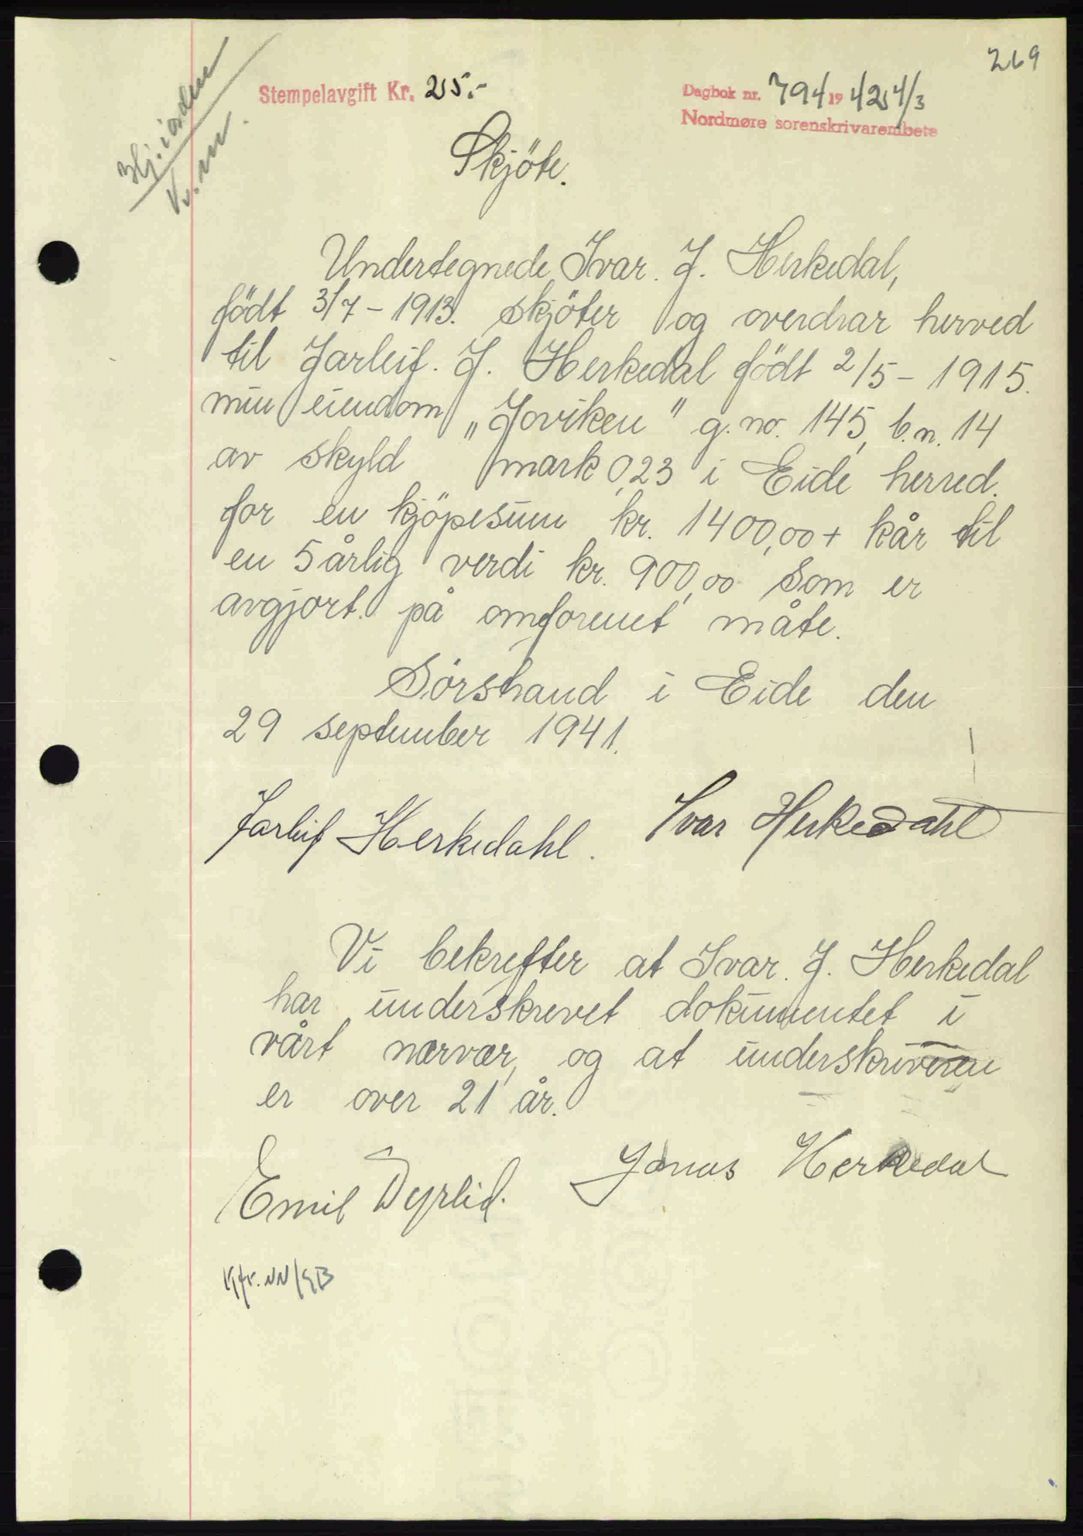 269
Stempelavgift Kr. 25.-
Dagbok nr. 794 1942 4/3
Nordmøre sorenskrivarembete
Skjöte.
Undertegnede Ivar. J. Herkedal,
født 3/7 - 1913. skjöter og overdrar herved
til Jarleif. J. Herkedal födt 2/5 - 1915.
min eiendom „Joviken" g.no. 145, b.n. 14
av skyld mark 0,23 i Eide herred.
for en kjöpesum kr. 1400,00 + kår til
en 5 årlig verdi kr. 900,00 som er
avgjort. på omforenet måte.
Sörstrand i Eide den
29 september 1941.
Jarleif Herkedahl. Ivar Herkedahl
Vi bekrefter at Ivar. J. Herkedal
har underskrevet dokumentet i
vårt nærvær, og at underskriveren
er over 21 år.
Emil Dyrlid. Jonas Herkedal
Kfr. NN/GB